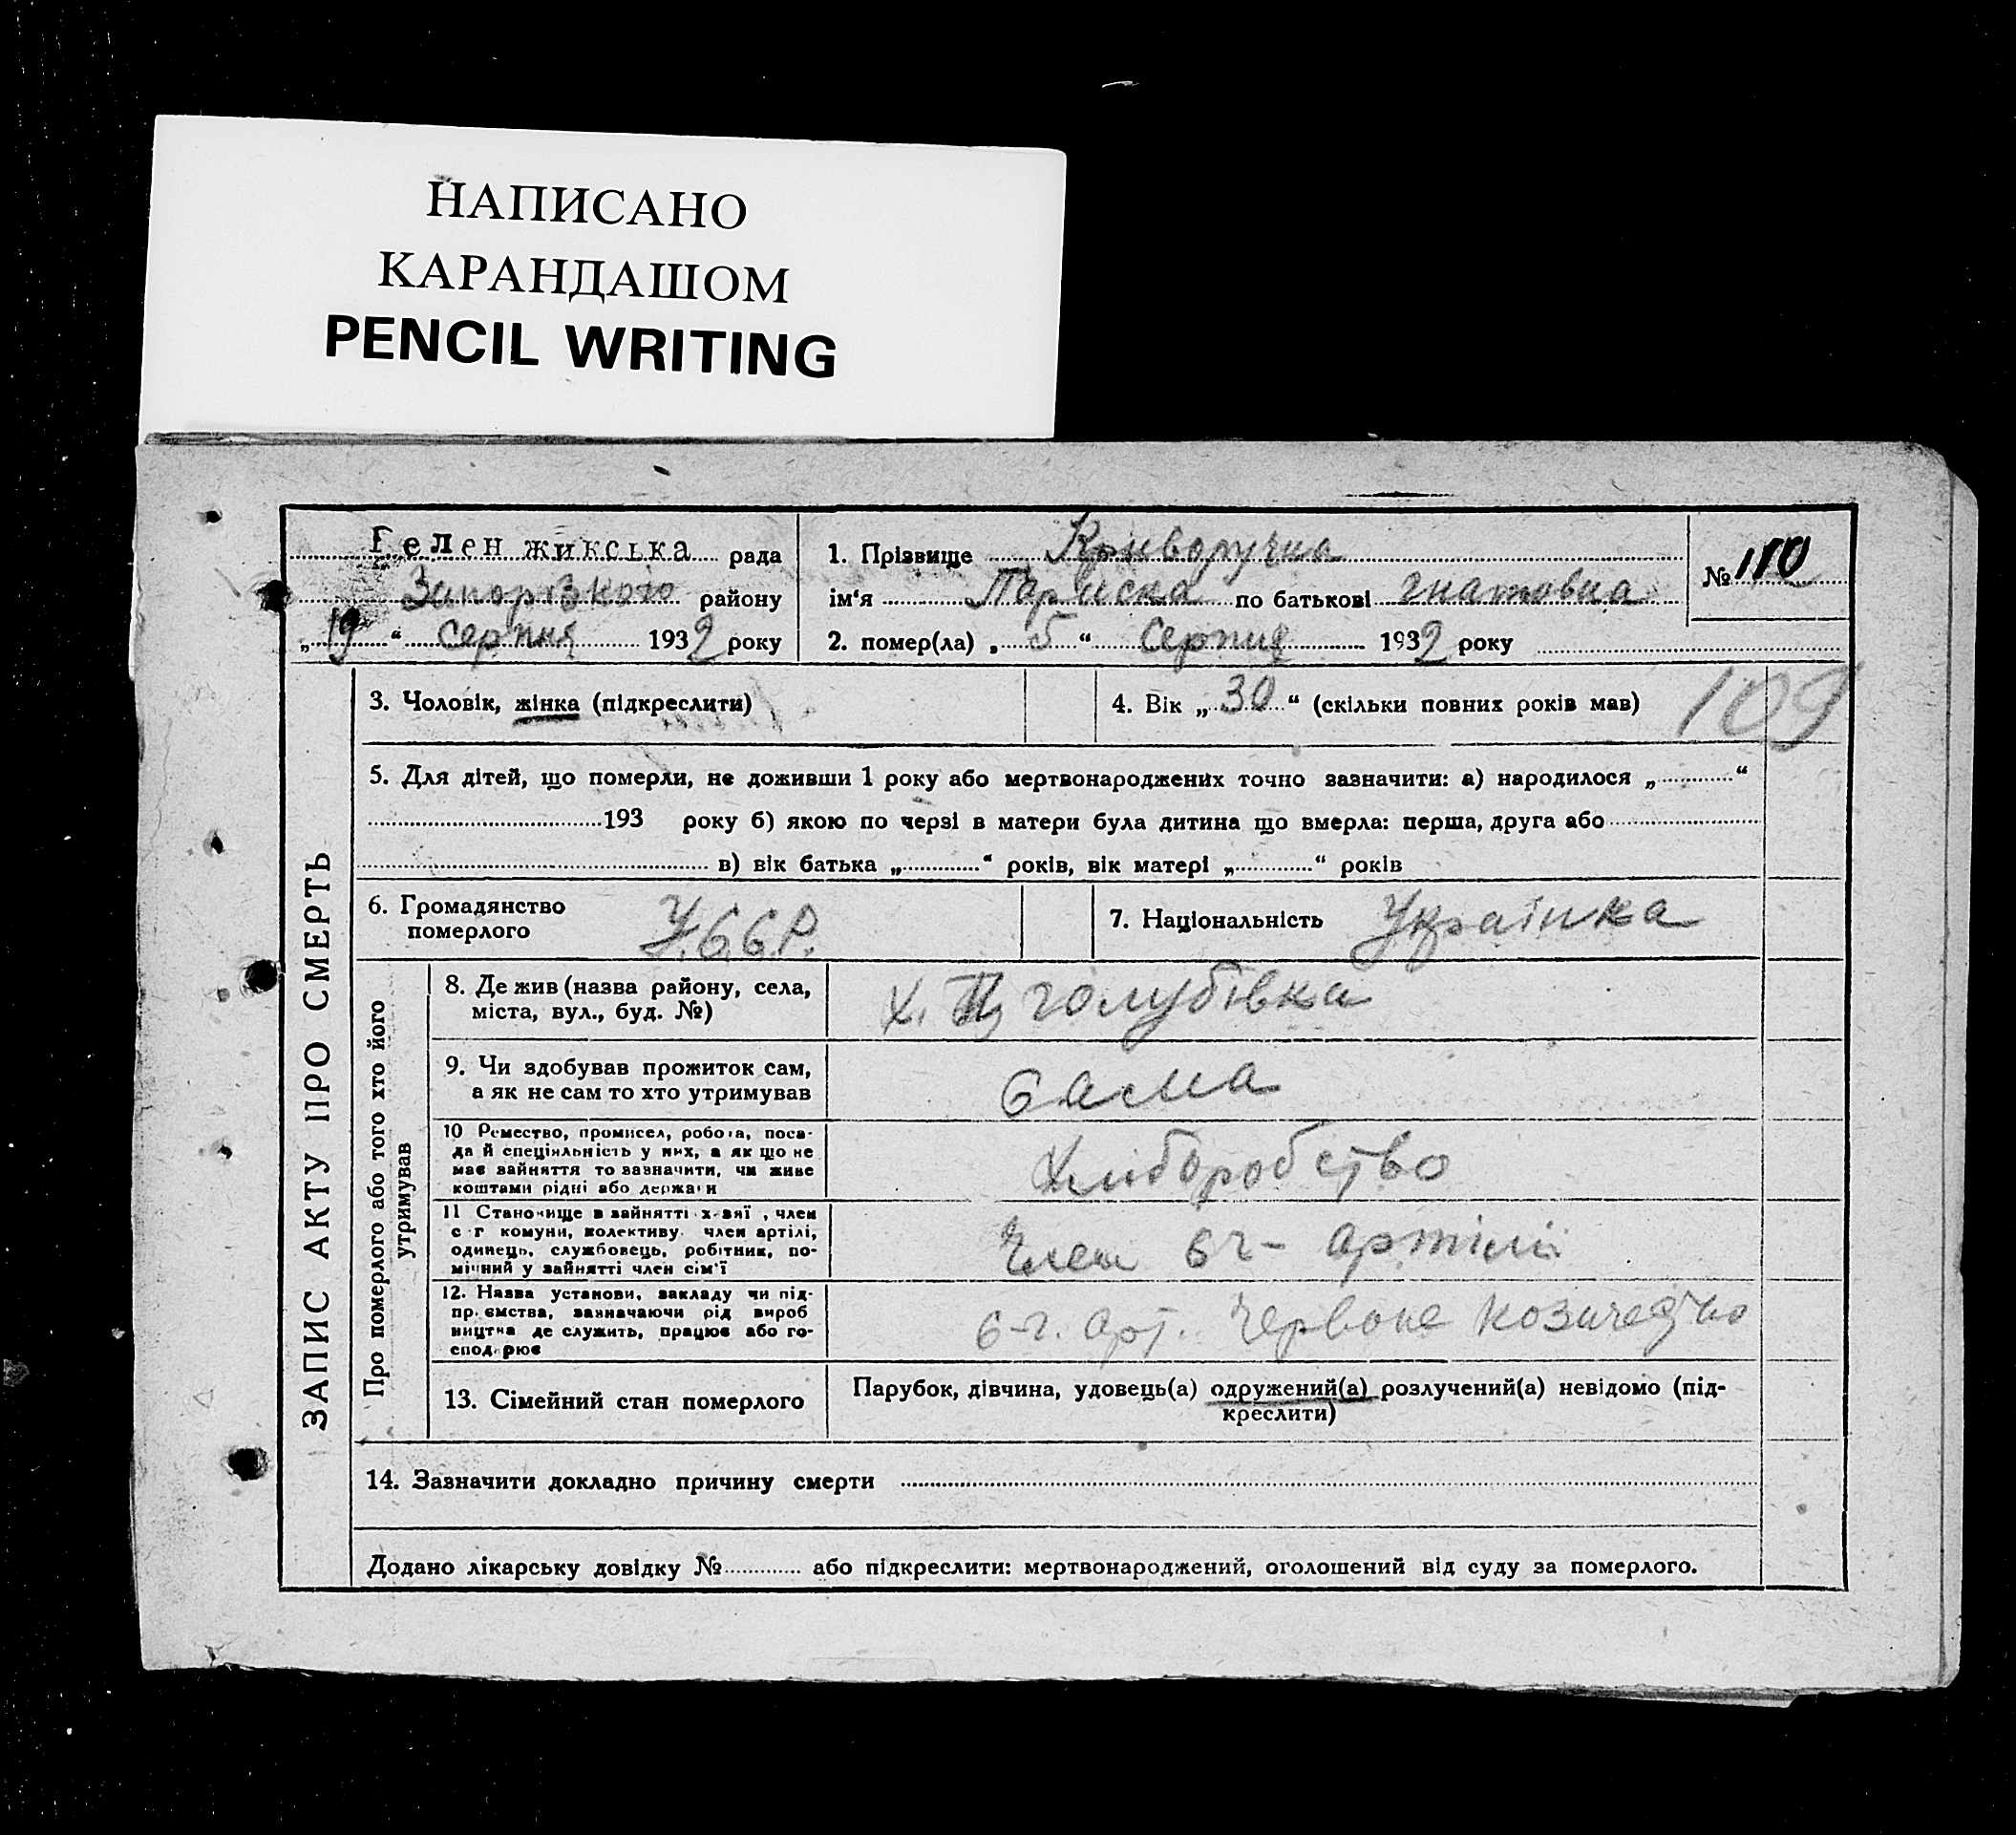 НАПИСАНО
КАРАНДАШОМ
PENCIL WRITING
Белен жикська рада
Запорізкого району
„19“ серпня 1932 року
1. Прізвище Криворучка
ім'я Параска по батькові Гнатовна
2. помер(ла) „5“ Серпня 1932 року
№ 110
3. Чоловік, жінка (підкреслити)
4. Вік „30“ (скільки повних років мав)
109
5. Для дітей, що померли, не доживши 1 року або мертвонароджених точно зазначити: а) народилося „ “
193 року б) якою по черзі в матери була дитина що вмерла: перша, друга або
в) вік батька „ “ років, вік матері „ “ років
6. Громадянство
померлого
У.С.С.Р.
7. Національність Українка
ЗАПИС АКТУ ПРО СМЕРТЬ
Про померлого або того хто його
утримував
8. Де жив (назва району, села,
міста, вул., буд. №)
х. голубівка
9. Чи здобував прожиток сам,
а як не сам то хто утримував
Сама
10 Ремество, промисел, робота, поса-
да й спеціяльність у них, а як що не
має зайняття то зазначити, чи живе
коштами рідні або держави
Хліборобство
11 Становище в зайнятті х-вяї, член
с г комуни, колективу член артілі,
одинець, службовець, робітник, по-
мічний у зайнятті член сім'ї
Член сг- артілі
12. Назва установи, закладу чи під-
приємства, зазначаючи рід вироб
ництва де служить, працює або го-
сподарює
с-г. арт. Червоне козачество
13. Сімейний стан померлого
Парубок, дівчина, удовець(а) одружений(а) розлучений(а) невідомо (під-
креслити)
14. Зазначити докладно причину смерти
Додано лікарську довідку № або підкреслити: мертвонароджений, оголошений від суду за померлого.